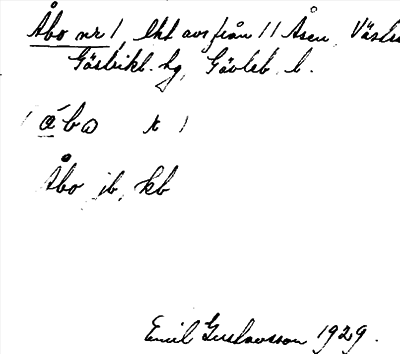 Åbo nr 1, lht avs från 11 Åsen, Västra
Gästrikl. hg, Gävleb. l.
åbo t 1
Åbo jb, kb
Emil Gustavsson 1929.